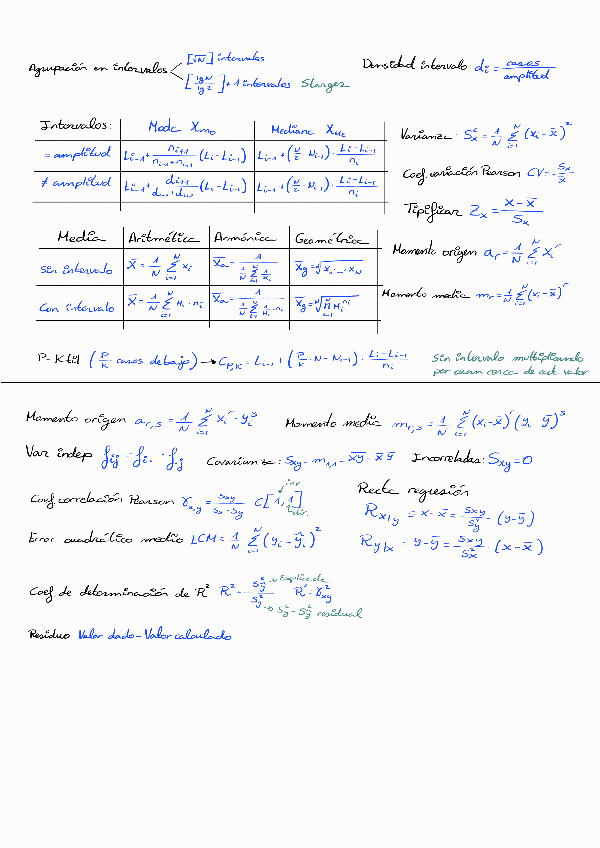 Agrupación en intervalos
[√N] intervalos
[lg N / lg 2] + 1 intervalos Sturges
Densidad intervalo di = casos / amplitud
Intervalos: Moda X_Mo Mediana X_Me
= amplitud L_{i-1} + n_{i+1} / (n_{i-1} + n_{i+1}) (L_i - L_{i-1}) L_{i-1} + (N/2 - N_{i-1}) · (L_i - L_{i-1}) / n_i
≠ amplitud L_{i-1} + d_{i+1} / (d_{i-1} + d_{i+1}) (L_i - L_{i-1}) L_{i-1} + (N/2 - N_{i-1}) · (L_i - L_{i-1}) / n_i
Varianza: S_x^2 = 1/N Σ_{i=1}^N (x_i - x̄)^2
Coef. variación Pearson CV = S_x / x̄
Tipificar Z_x = (x - x̄) / S_x
Media Aritmética Armónica Geométrica
Sin intervalo X̄ = 1/N Σ_{i=1}^N x_i X̄a = 1 / (1/N Σ_{i=1}^N 1/x_i) X̄g = ^N√(x_1 ... x_N)
Con intervalo X̄ = 1/N Σ_{i=1}^N M_i · n_i X̄a = 1 / (1/N Σ_{i=1}^N 1/M_i · n_i) X̄g = ^N√(Π_{i=1}^N M_i^{n_i})
Momento origen a_r = 1/N Σ_{i=1}^N x_i^r
Momento media m_r = 1/N Σ_{i=1}^N (x_i - x̄)^r
P-Ktil (P/K casos debajo) → C_{P,K} = L_{i-1} + (P/K · N - N_{i-1}) · (L_i - L_{i-1}) / n_i
Sin intervalo multiplicando
por cuan cerca de cada valor
Momento origen a_{r,s} = 1/N Σ_{i=1}^N x_i^r · y_i^s Momento media m_{r,s} = 1/N Σ_{i=1}^N (x_i - x̄)^r (y_i - ȳ)^s
Var indep f_ij = f_i. · f_.j Covarianza: S_xy = m_{1,1} = x̄ȳ - x̄ ȳ Incorreladas: S_xy = 0
Coef correlación Pearson r_{x,y} = S_xy / (S_x · S_y) C [-1, 1]
inv
dir.
Recta regresión
R_{x/y} = x - x̄ = S_xy / S_y^2 · (y - ȳ)
Error cuadrático medio LCM = 1/N Σ_{i=1}^N (y_i - ŷ_i)^2
R_{y/x} = y - ȳ = S_xy / S_x^2 · (x - x̄)
Coef de determinación de R^2 R^2 = S_ŷ^2 / S_y^2 R^2 = r_xy^2
→ Explicada
→ S_y^2 - S_ŷ^2 residual
Residuo Valor dado - Valor calculado